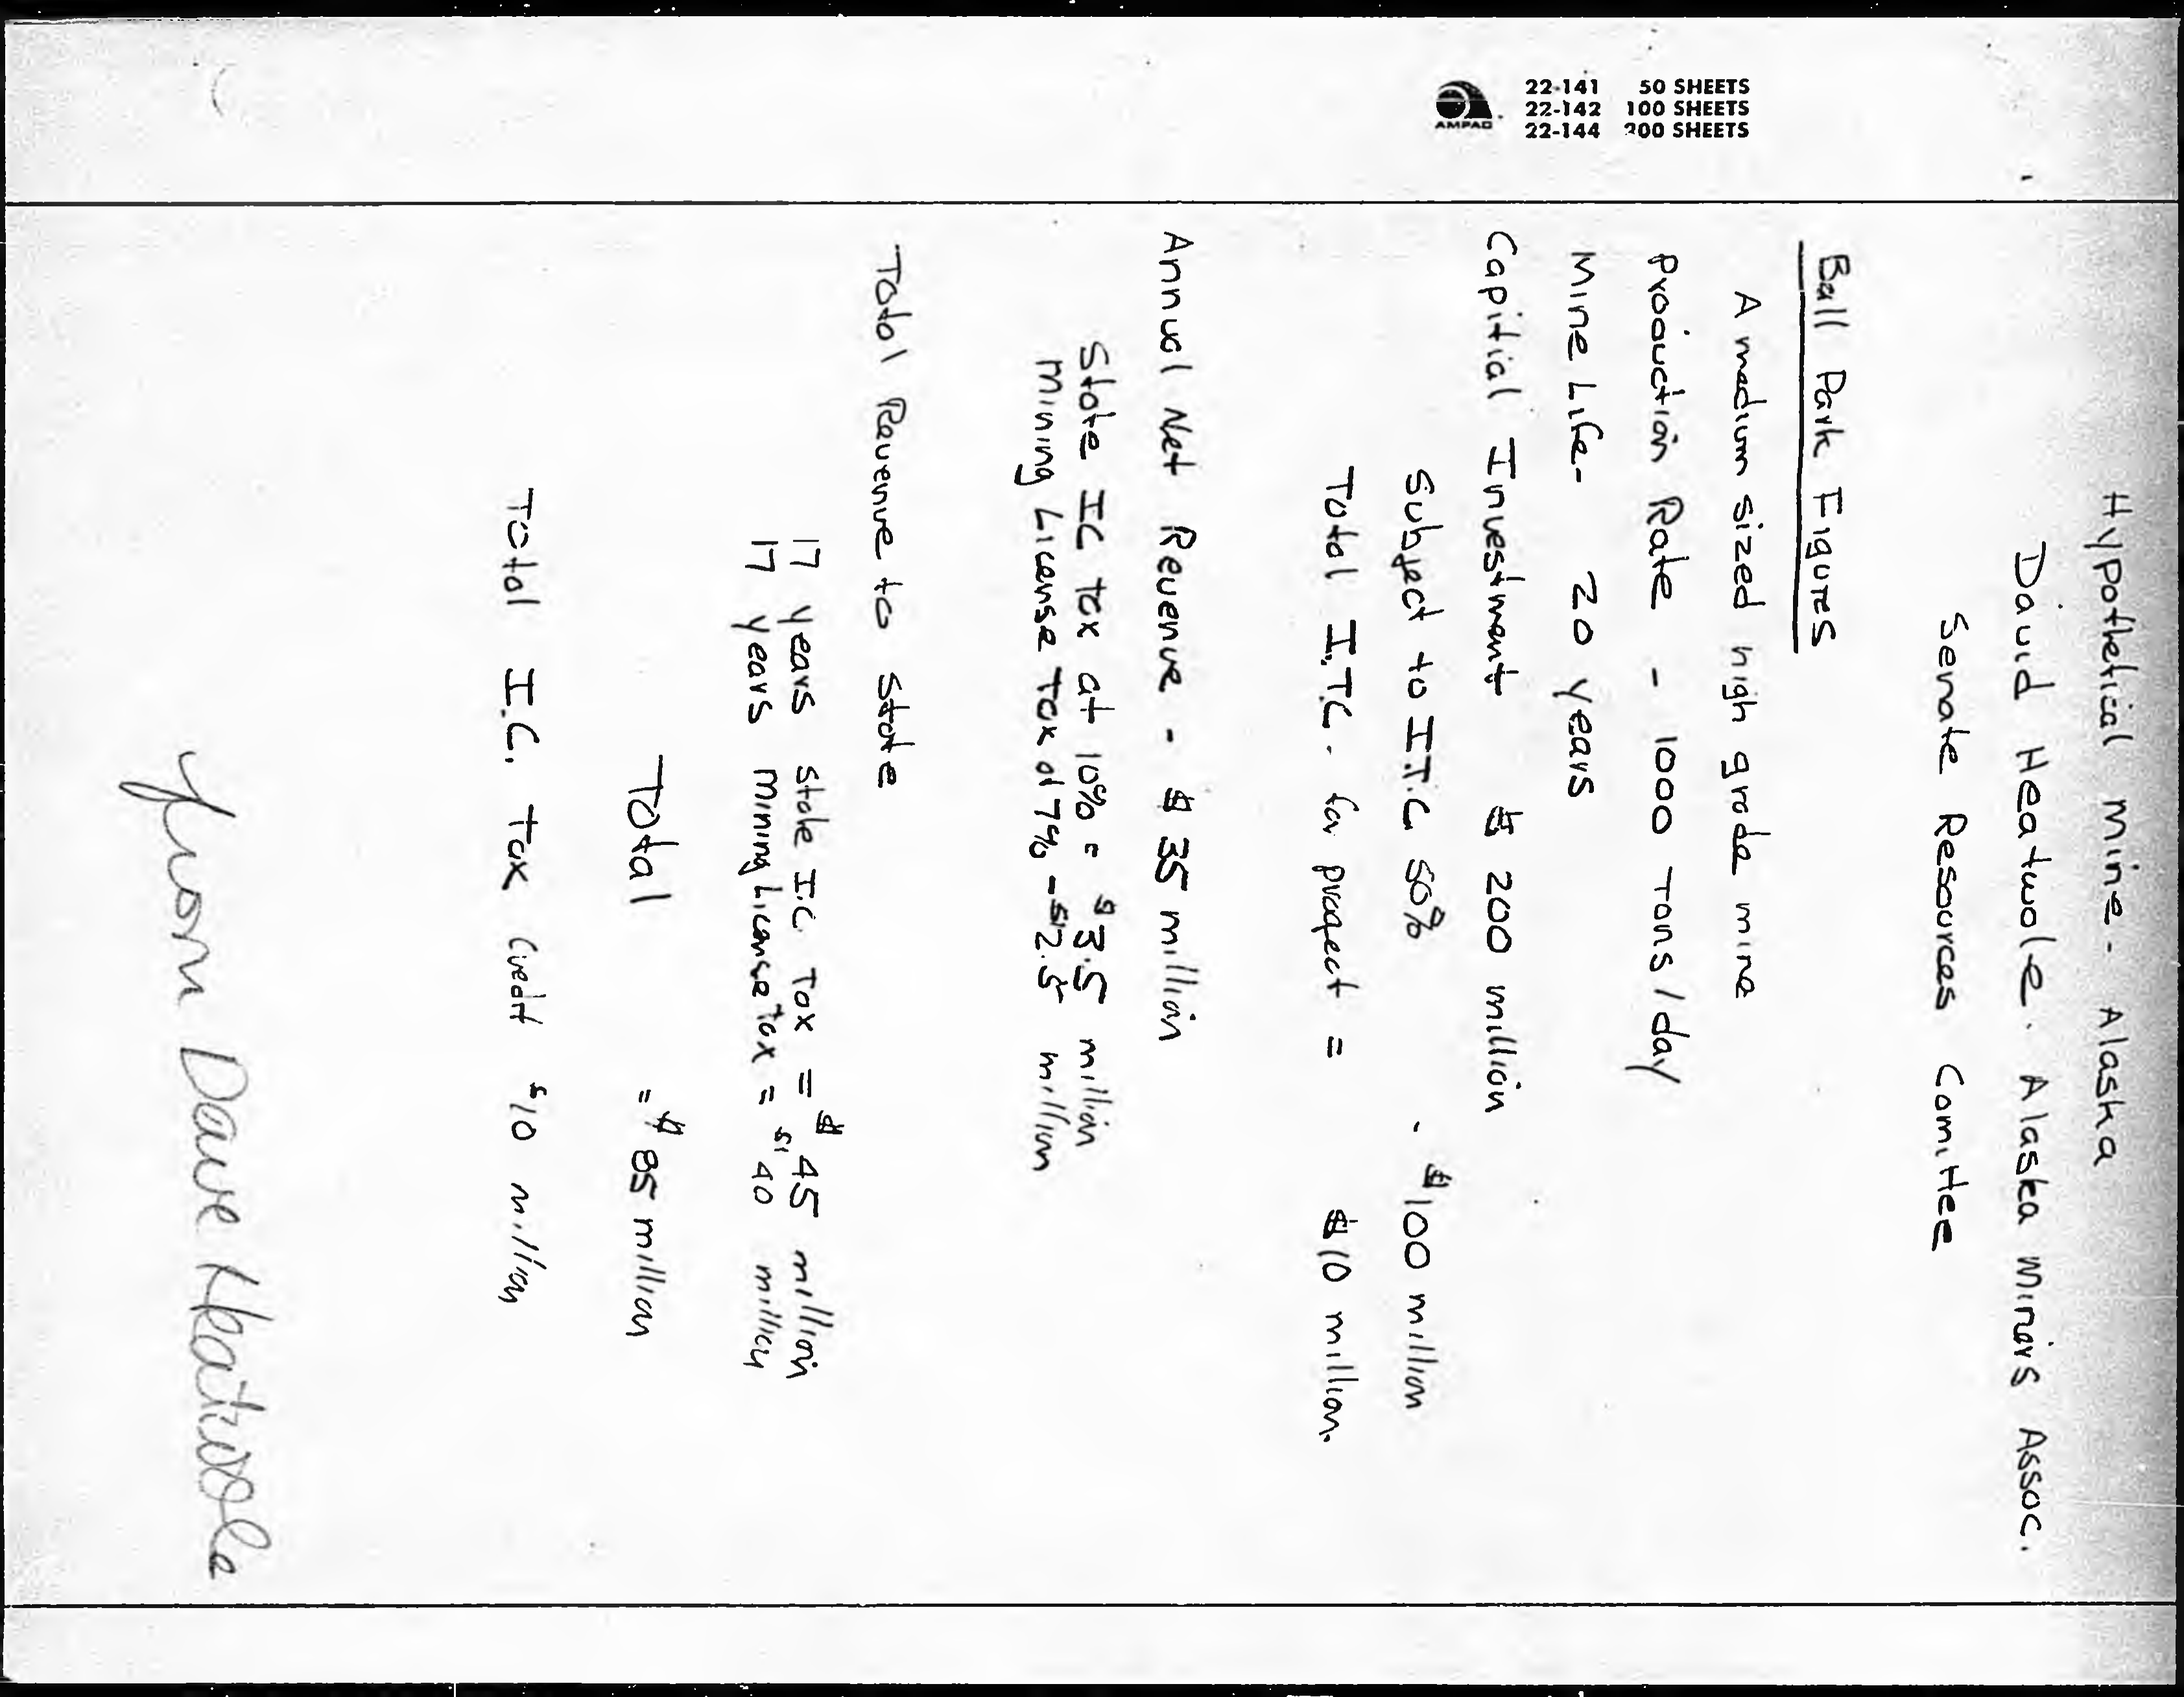 Hypothetical Mine - Alaska
David Heatwole. Alaska Miners Assoc.
Senate Resources Comittee
Ball Park Figures
A medium sized high grade mine
Production Rate - 1000 Tons/day
Mine Life - 20 years
Capitial Investment $200 million
Subject to I.T.C. 50% - $100 million
Total I.T.C. for project = $10 million.
Annual Net Revenue - $35 million
State IC tax at 10% = $3.5 million
Mining License Tax at 7% - $2.5 million
Total Revenue to State
17 years State I.C. Tax = $45 million
17 years Mining License Tax = $40 million
Total = $85 million
Total I.C. Tax Credit $10 million
from Dave Heatwole
22-141 50 SHEETS
22-142 100 SHEETS
22-144 200 SHEETS
AMPAD